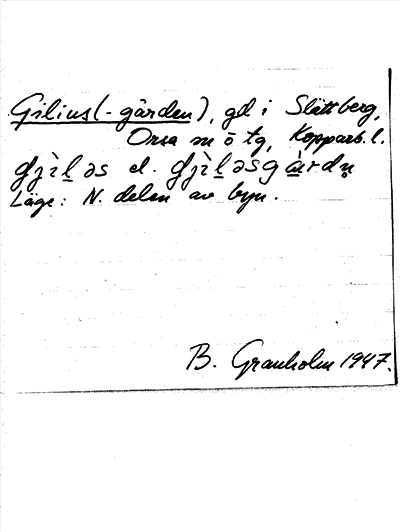 Gilius(-gården), gd i Slättberg,
Orsa sn ö tg, Kopparb. l.
ɠjìḻəs el. ɠjìḻəsgàrdṇ
Läge: N. delen av byn.
B. Granholm 1947.